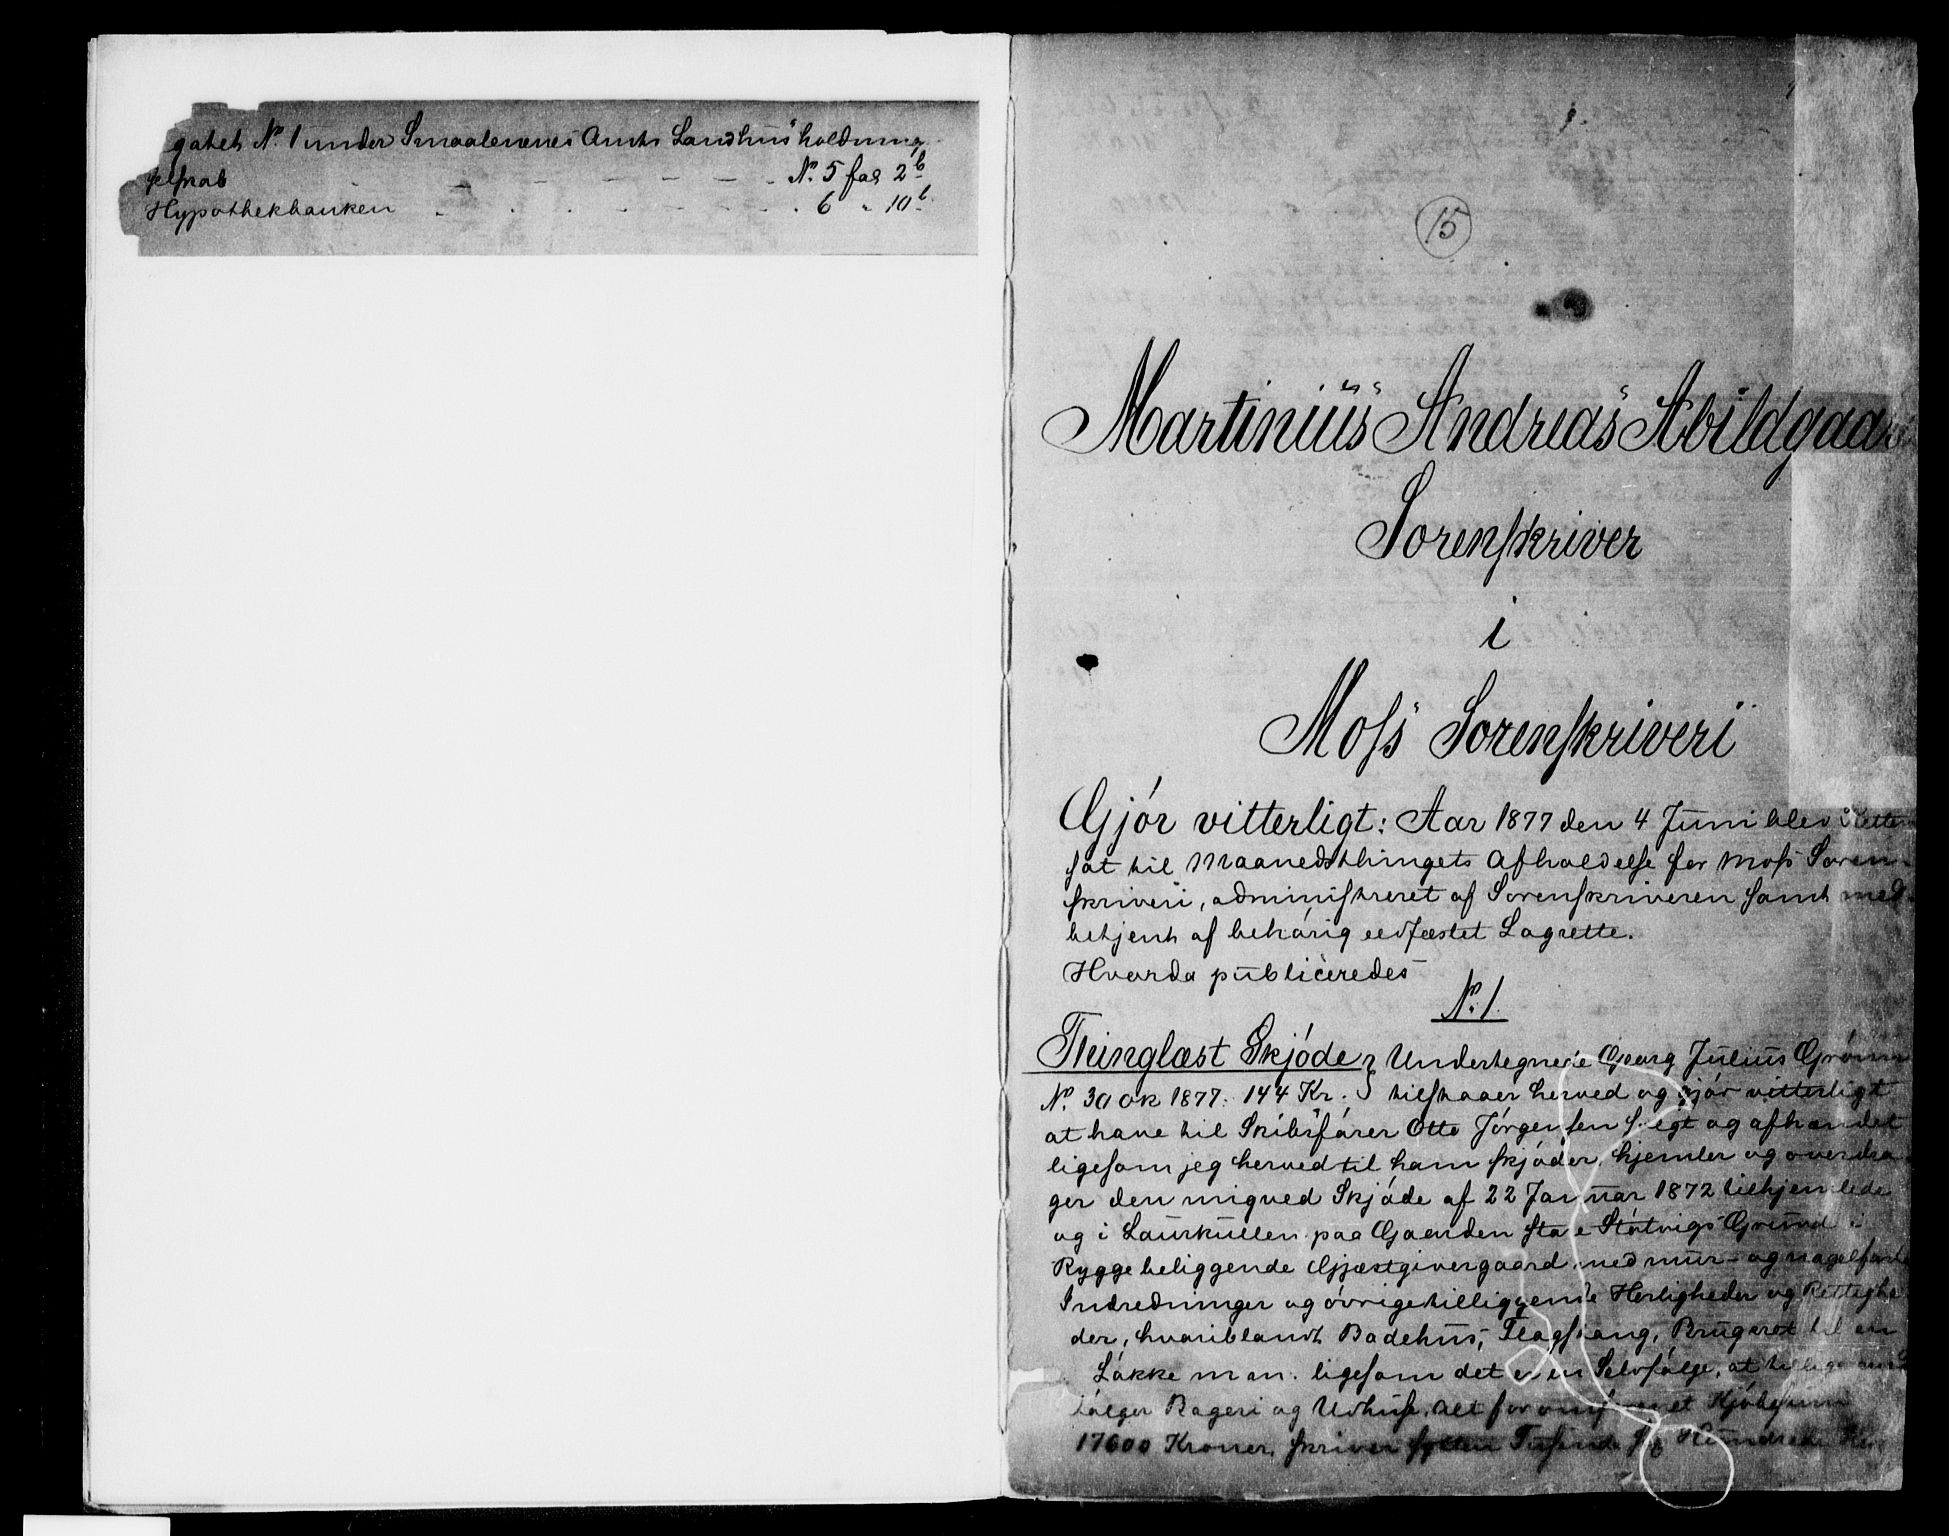 gatet No. 1 under Smaalenenes Amts Landhusholdning
selskab - - - - - - No. 5 fol 2b
Hypothekbanken . . . . . . 6 " 10b
15
Martinius Andreas Abildgaar
Sorenskriver
i
Moss Sorenskriveri
Gjór vitterligt: Aar 1877 den 4 Juni blev Retten
sat til Maanedsthingets Afholdelse for Moss Soren-
skriveri, administreret af Sorenskriveren samt med
betjent af behórig eedfæstet Lagrette.
Hvorda publiceredes
No. 1.
Thinglæst Skjóde, Undertegnede Georg Julius Grónn
No. 30 ok 1877. 144 Kr. tilstaaer herved og gjór vitterligt
at have til Skibsfórer Otto Jórgensen solgt og afhændet
ligesom jeg herved til ham skjóder, hjemler og overdra-
ger den mig ved Skjóde af 22 Januar 1872 tilhjemlede
og i Laurkullen paa Gaarden store Stótvigs Grund i
Rygge beliggende Gjæstgivergaard med mur- og nagelfaste
Indredninger og óvrige tilliggende Herligheder og Rettighe
der, hvoriblandt Badehus, Flagstang, Brugsret til en
Lókke m m. ligesom det er en Selvfólge, at tillige med
fólger Bageri og Udhuse. Alt for omforenet Kjóbesum
17600 Kroner, skriver sytten Tusinde sex Hundrede Kro